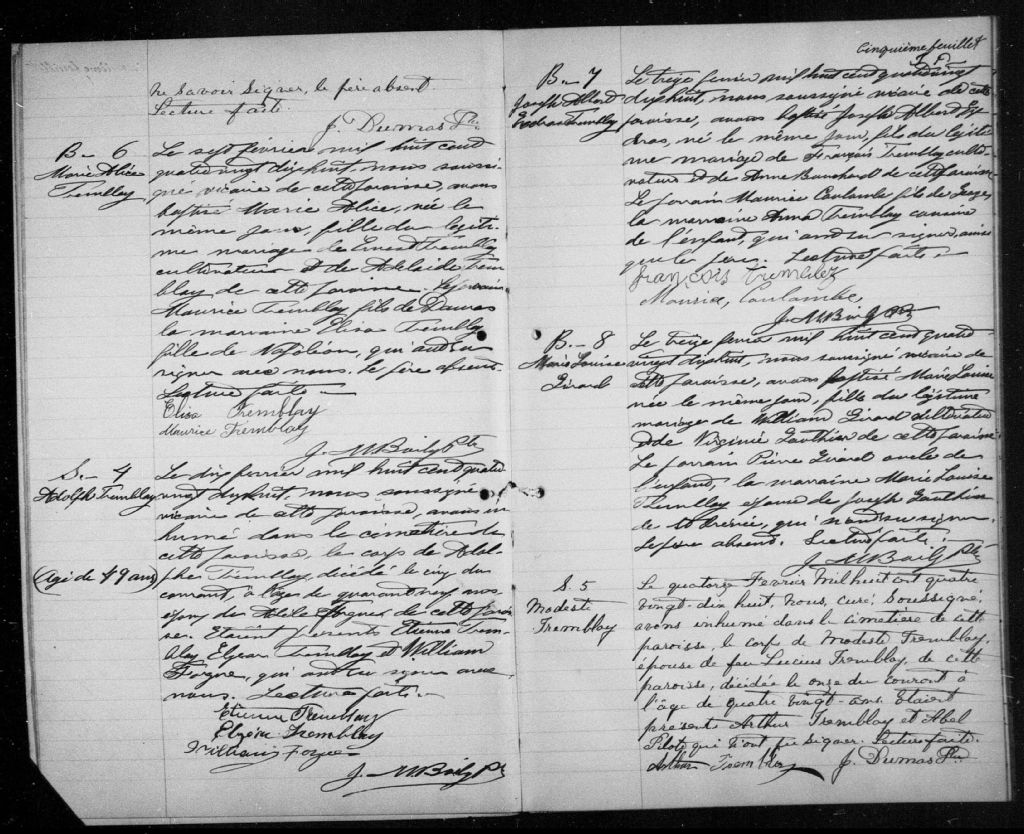 ne savoir signer, le père absent.
Lecture faite.
J. Dumas Ptre
B.- 6
Marie Alice
Tremblay
Le sept février mil huit cent
quatre vingt dix huit, nous soussi-
gné vicaire de cette paroisse, avons
baptisé Marie Alice, née le
même jour, fille du légiti-
me mariage de Ernest Tremblay
cultivateur et de Adelaide Trem
blay de cette paroisse. Le parrain
Maurice Tremblay fils de Dumas
la marraine Elisa Tremblay
fille de Napoléon, qui ont su
signer avec nous. Le père absent.
Lecture faite.-
Elisa Tremblay
Maurice Tremblay
J. M Baily Ptre
S.- 4
Adolphe Tremblay
(Agé de 49 ans)
Le dix fevrier mil huit cent quatre
vingt dix huit, nous soussigné
vicaire de cette paroisse, avons in
humé dans le cimetière de
cette paroisse, le corps de Adol
phe Tremblay, décédé le cinq du
courant, à l'âge de quarante neuf ans
époux de Adèle de cette parois
se. Etaient présents Etienne Trem-
blay Elzear Tremblay et William
Forgue, qui ont su signer avec
nous. Lecture faite.-
Etienne Tremblay
Elzéar Tremblay
William
J. M Baily Ptre
Cinquième feuillet
B.- 7
Joseph Albert
Tremblay
Le treize fevrier mil huit cent quatre vingt
dix huit, nous soussigné vicaire de cette
paroisse, avons baptisé Joseph Albert
né le même jour, fils du légiti
me mariage de François Tremblay culti-
vateur et de Anne Bouchard de cette paroisse
Le parrain Maurice Coulombe fils de
la marraine Anna Tremblay cousine
de l'enfant, qui ont su signer, ainsi
que le père. Lecture faite.-
François Tremblez
Maurice, Coulambe,
J. M Baily Ptre
B.- 8
Marie Louise
Girard
Le treize fevrier mil huit cent quatre
vingt dix huit, nous soussigné vicaire de
cette paroisse, avons baptisé Marie Louise
née le même jour, fille du légitime
mariage de William Girard cultivateur
et de Virginie Gauthier de cette paroisse
Le parrain Pierre Girard oncle de
l'enfant, la marraine Marie Louise
Tremblay épouse de Joseph Gauthier
de St Irénée, qui n'ont su signer.
Le père absent. Lecture faite.-
J. M Baily Ptre
S. 5
Modeste
Tremblay
Le quatorze Fevrier Mil huit cent quatre
vingt-dix huit, Nous, curé, soussigné,
avons inhumé dans le cimetière de cette
paroisse, le corps de Modeste Tremblay,
épouse de feu Lucius Tremblay, de cette
paroisse, décédée le onze du courant à
l'âge de quatre vingt-ans. Etaient
présent Arthur Tremblay et Abel
Pilote qui n'ont pu signer. Lecture faite.
Arthur Tremblay J. Dumas Ptre